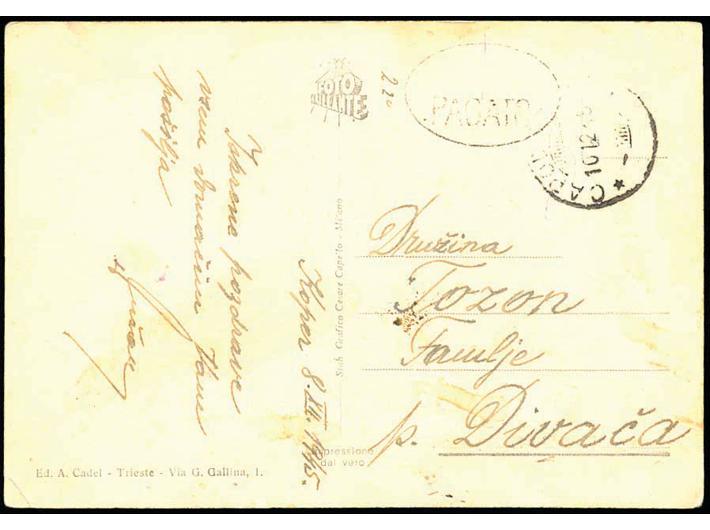 Iskrene pozdrave
vsem domačim Vam
pošilja
Koper 8.XII.1945.
FOTO
BRILLANTE
220
PAGATO
10.12
Družina
Tozon
Famlje
p. Divača
Stab. Grafico Cesare Capello - Milano
Espressione
dal vero
Ed. A. Cadel - Trieste - Via G. Gallina, 1.